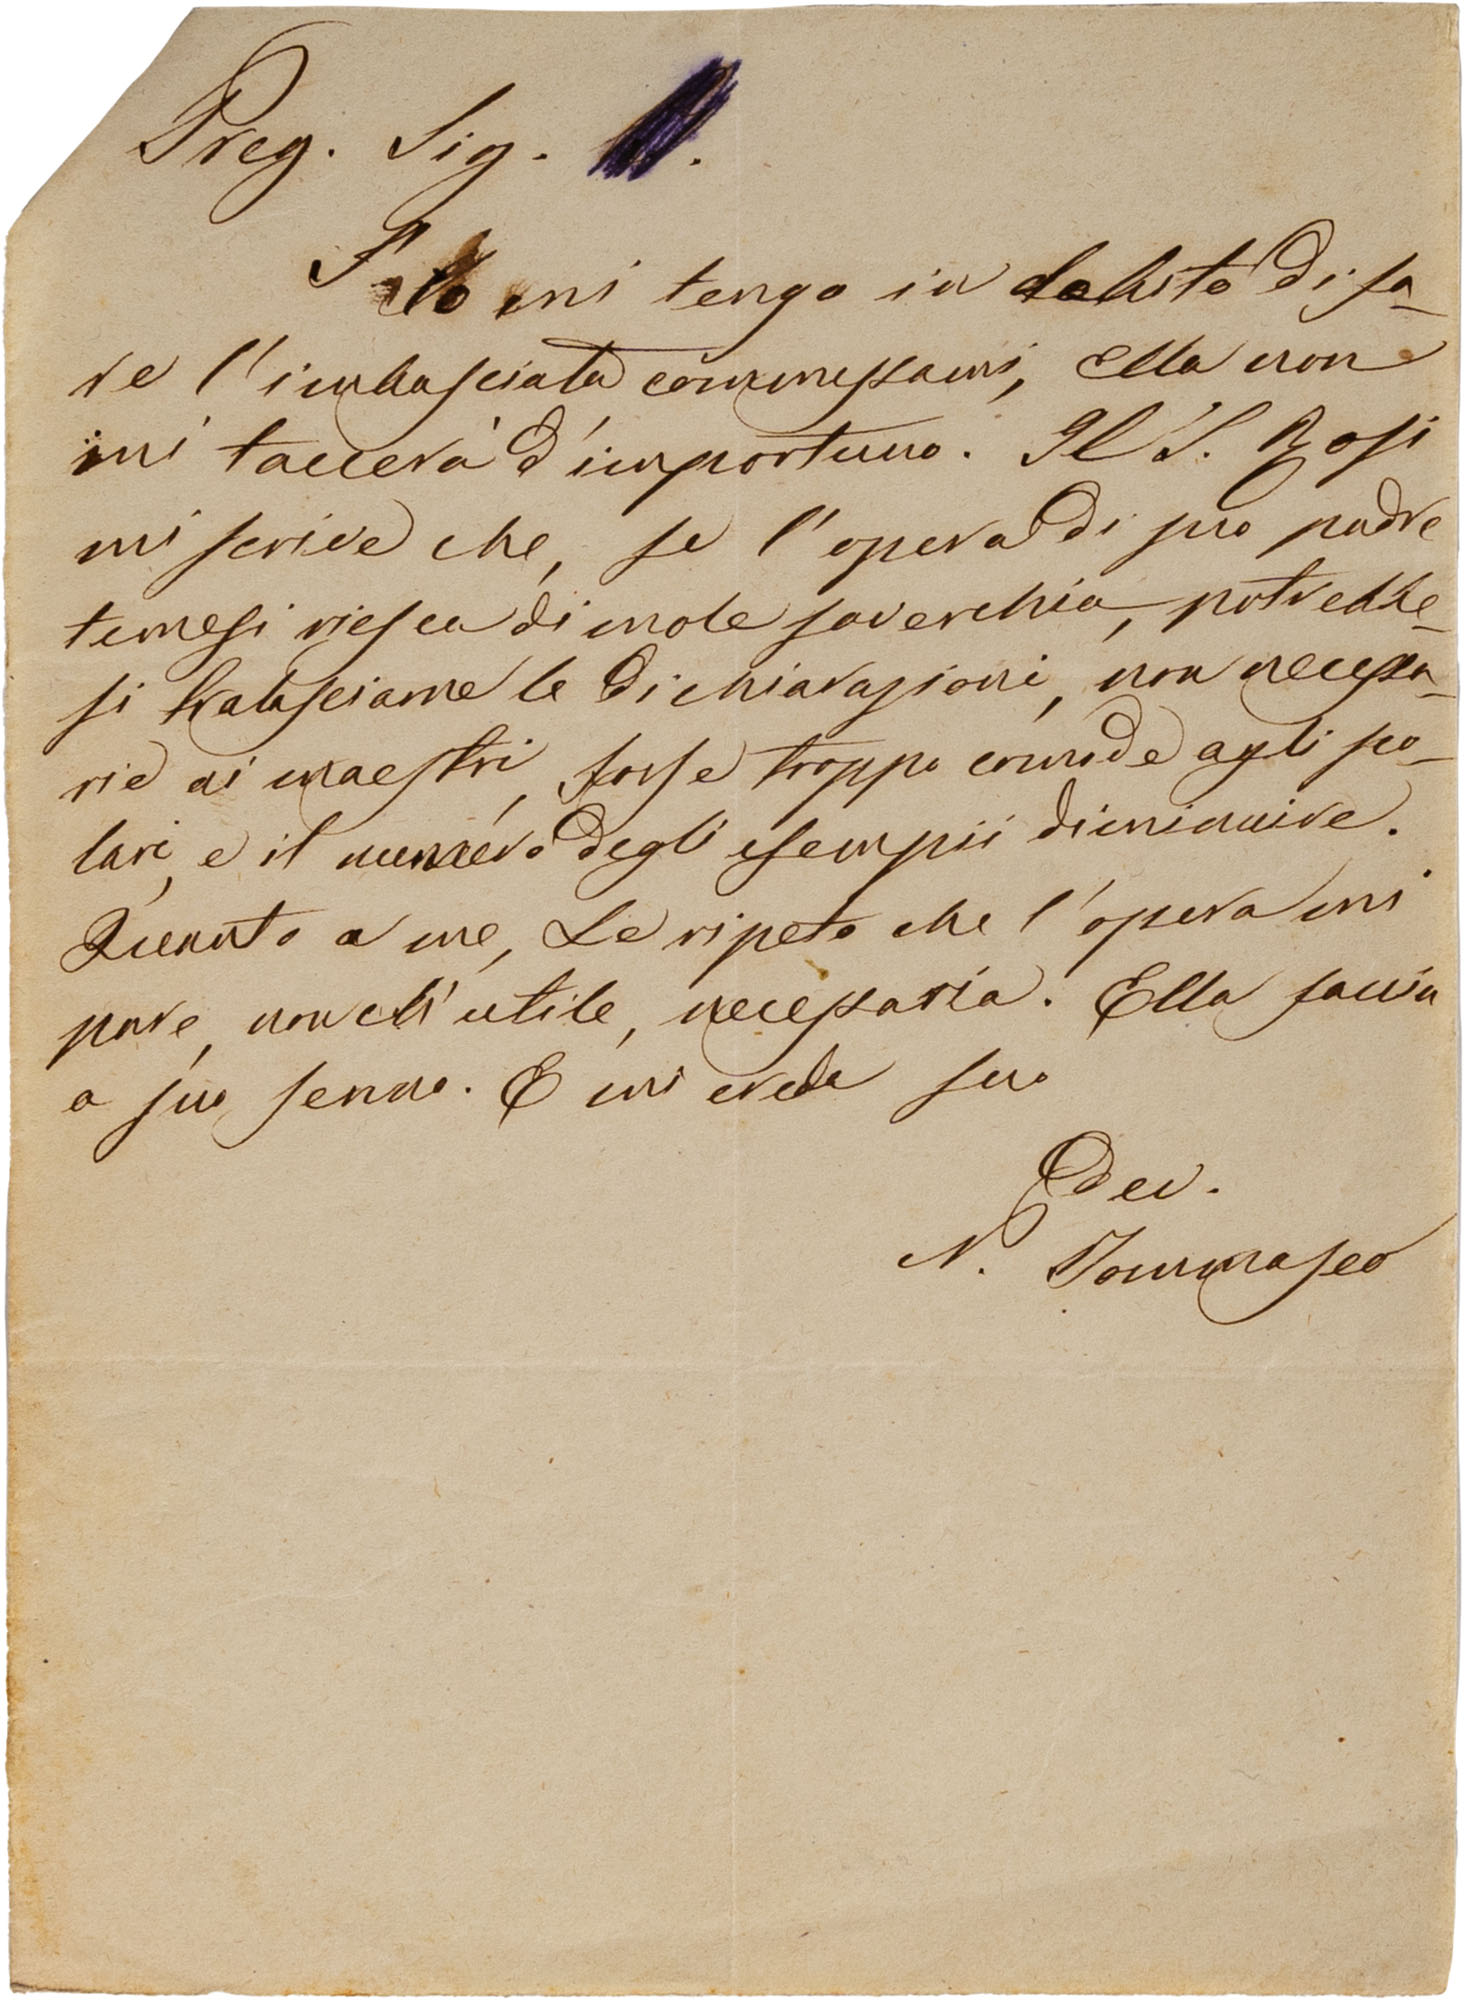 Preg. Sig.
Se mi tengo in debito di fa-
re l'imbasciata commessami, Ella non
mi taccerà d'importuno. Il S. Rosi
mi scrive che, se l'opera di suo padre
temesi riesca di mole soverchia, potrebbe-
si tralasciarne le dichiarazioni, non necessa-
rie ai maestri, forse troppo comode agli sco-
lari, e il numero degli esempii diminuire.
Quanto a me, Le ripeto che l'opera mi
pare, non ch'utile, necessaria. Ella faccia
a suo senno. E mi creda suo
Dev.
N. Tommaseo